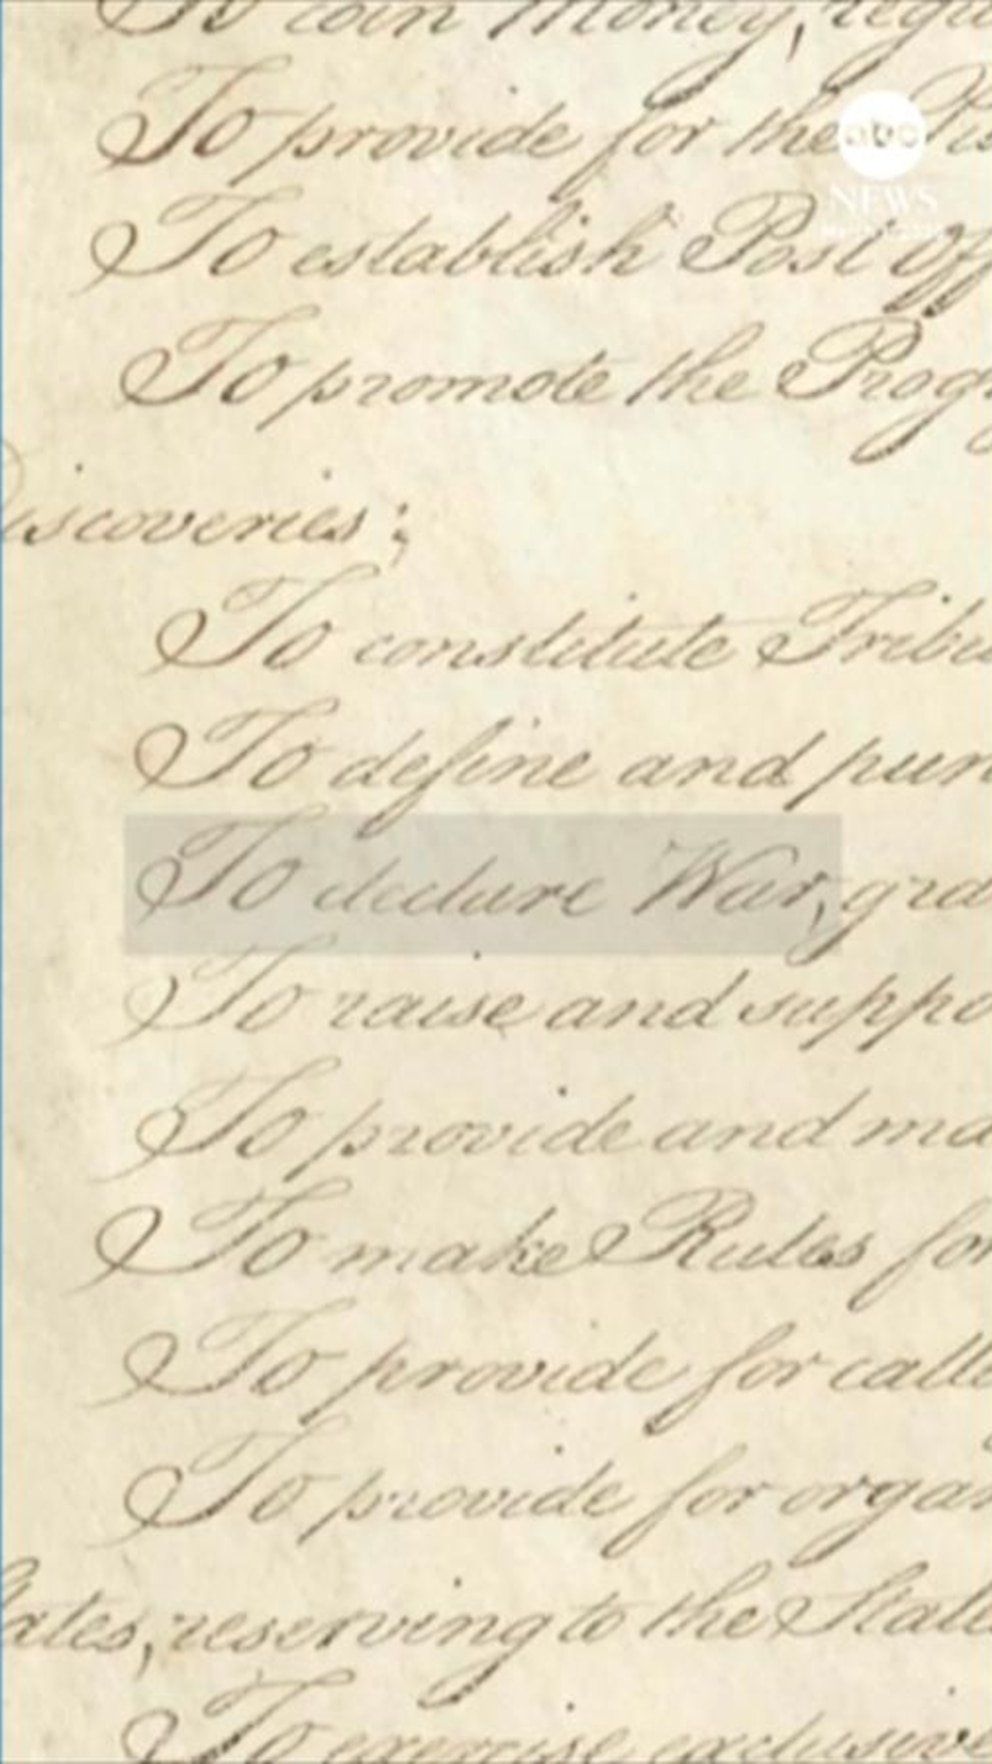 To coin Money, regu
To provide for the Pu
To establish Post Off
To promote the Progr
iscoveries;
To constitute Tribu
To define and pun
To declare War, gra
To raise and suppo
To provide and ma
To make Rules for
To provide for calli
To provide for organ
tates, reserving to the State
To exercise exclusive
abc
NEWS